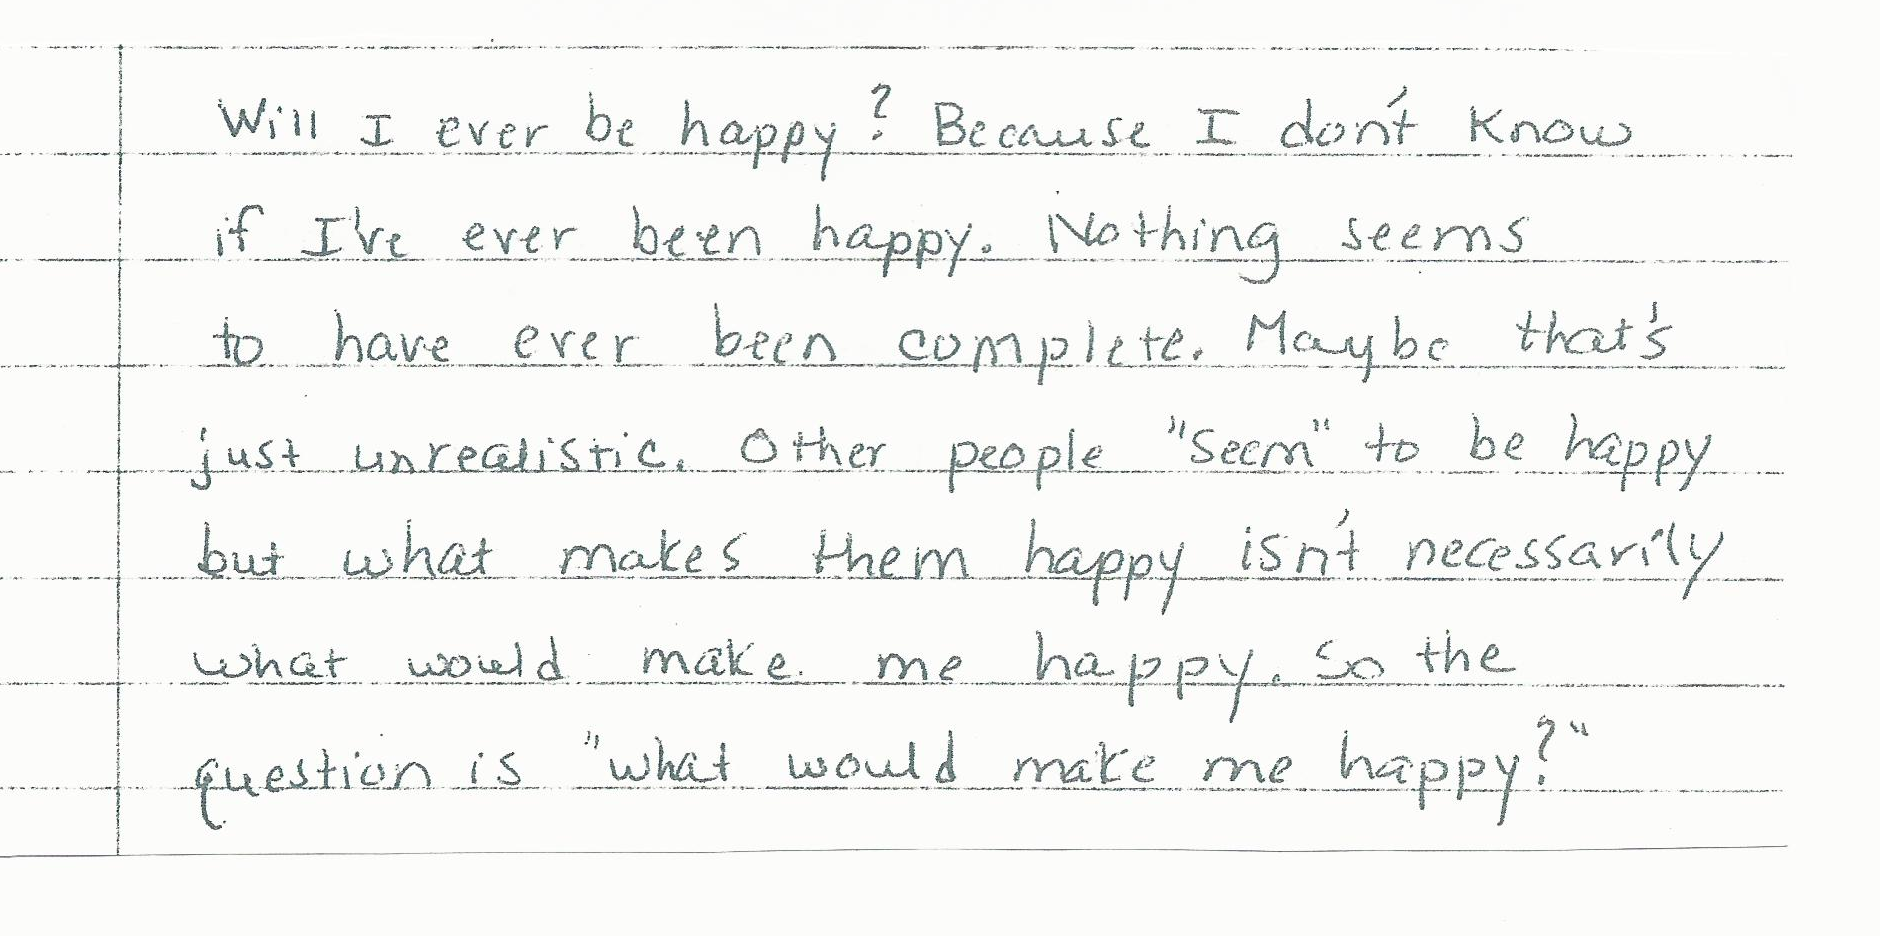 Will I ever be happy? Because I don't know
if I've ever been happy. Nothing seems
to have ever been complete. Maybe that's
just unrealistic. Other people "seem" to be happy
but what makes them happy isn't necessarily
what would make me happy. So the
question is "what would make me happy?"